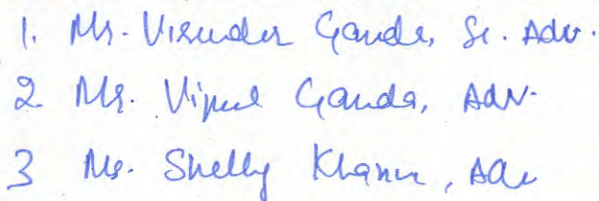 1. Mr. Virender Ganda, Sr. Adv.
2 Mr. Vipul Ganda, Adv.
3 Ms. Shelly Khanna, Adv